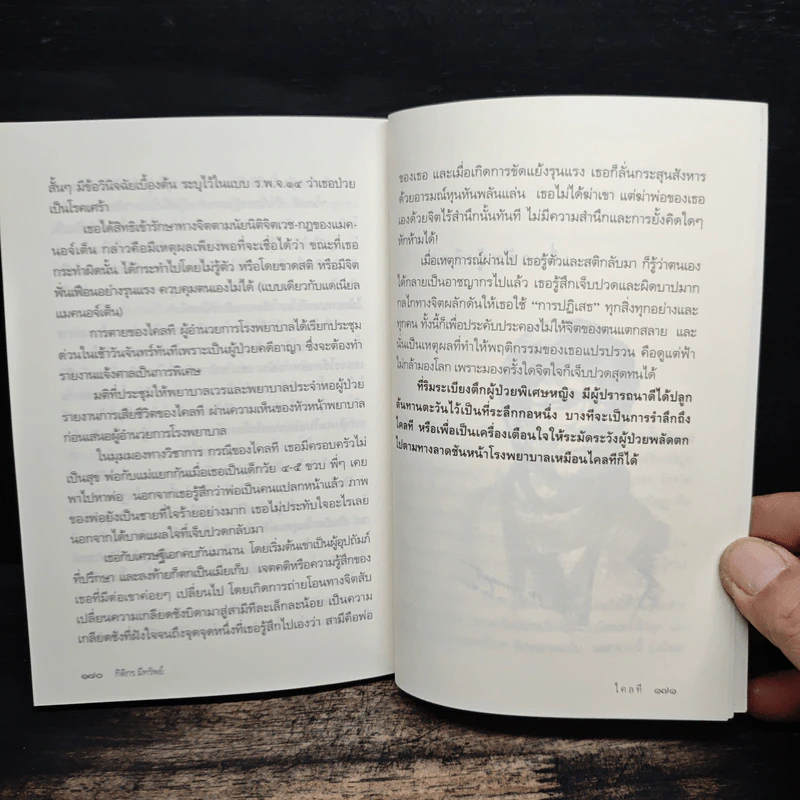 สั้นๆ มีข้อวินิจฉัยเบื้องต้น ระบุไว้ในแบบ ร.พ.จ.๑๔ ว่าเธอป่วย
เป็นโรคเศร้า
เธอได้สิทธิเข้ารักษาทางจิตตามนัยนิติจิตเวช-กฎของแมค-
นอจ์เต็น กล่าวคือมีเหตุผลเพียงพอที่จะเชื่อได้ว่า ขณะที่เธอ
กระทำผิดนั้น ได้กระทำไปโดยไม่รู้ตัว หรือโดยขาดสติ หรือมีจิต
ฟั่นเฟือนอย่างรุนแรง ควบคุมตนเองไม่ได้ (แบบเดียวกับแดเนียล
แมคนอจ์เต็น)
การตายของไคลที ผู้อำนวยการโรงพยาบาลได้เรียกประชุม
ด่วนในเช้าวันจันทร์ทันทีเพราะเป็นผู้ป่วยคดีอาญา ซึ่งจะต้องทำ
รายงานแจ้งศาลเป็นการพิเศษ
มติที่ประชุมให้พยาบาลเวรและพยาบาลประจำหอผู้ป่วย
รายงานการเสียชีวิตของไคลที ผ่านความเห็นของหัวหน้าพยาบาล
ก่อนเสนอผู้อำนวยการโรงพยาบาล
ในมุมมองทางวิชาการ กรณีของไคลที เธอมีครอบครัวไม่
เป็นสุข พ่อกับแม่แยกกันเมื่อเธอเป็นเด็กวัย ๔-๕ ขวบ พี่ๆ เคย
พาไปหาพ่อ นอกจากเธอรู้สึกว่าพ่อเป็นคนแปลกหน้าแล้ว ภาพ
ของพ่อยังเป็นชายที่ใจร้ายอย่างมาก เธอไม่ประทับใจอะไรเลย
นอกจากได้บาดแผลใจที่เจ็บปวดกลับมา
เธอกับเศรษฐีเอกคบกันมานาน โดยเริ่มต้นเขาเป็นผู้อุปถัมภ์
ที่ปรึกษา และลงท้ายก็ตกเป็นเมียเก็บ เจตคติหรือความรู้สึกของ
เธอที่มีต่อเขาค่อยๆ เปลี่ยนไป โดยเกิดการถ่ายโอนทางจิตสับ
เปลี่ยนความเกลียดชังบิดามาสู่สามีทีละเล็กละน้อย เป็นความ
เกลียดชังที่ฝังใจจนถึงจุดจุดหนึ่งที่เธอรู้สึกไปเองว่า สามีคือพ่อ
๑๗๐ กิติกร มีทรัพย์
ของเธอ และเมื่อเกิดการขัดแย้งรุนแรง เธอก็ลั่นกระสุนสังหาร
ด้วยอารมณ์หุนหันพลันแล่น เธอไม่ได้ฆ่าเขา แต่ฆ่าพ่อของเธอ
เองด้วยจิตไร้สำนึกนั้นทันที ไม่มีความสำนึกและการยั้งคิดใดๆ
หักห้ามได้!
เมื่อเหตุการณ์ผ่านไป เธอรู้ตัวและสติกลับมา ก็รู้ว่าตนเอง
ได้กลายเป็นอาชญากรไปแล้ว เธอรู้สึกเจ็บปวดและผิดบาปมาก
กลไกทางจิตผลักดันให้เธอใช้ “การปฏิเสธ” ทุกสิ่งทุกอย่างและ
ทุกคน ทั้งนี้ก็เพื่อประคับประคองไม่ให้จิตของตนแตกสลาย และ
นั่นเป็นเหตุผลที่ทำให้พฤติกรรมของเธอแปรปรวน คือดูแต่ฟ้า
ไม่กล้ามองโลก เพราะมองครั้งใดจิตใจก็เจ็บปวดสุดทนได้
ที่ริมระเบียงตึกผู้ป่วยพิเศษหญิง มีผู้ปรารถนาดีได้ปลูก
ต้นทานตะวันไว้เป็นที่ระลึกกอหนึ่ง บางทีจะเป็นการรำลึกถึง
ไคลที หรือเพื่อเป็นเครื่องเตือนใจให้ระมัดระวังผู้ป่วยพลัดตก
ไปตามทางลาดชันหน้าโรงพยาบาลเหมือนไคลทีก็ได้
ไคลที ๑๗๑